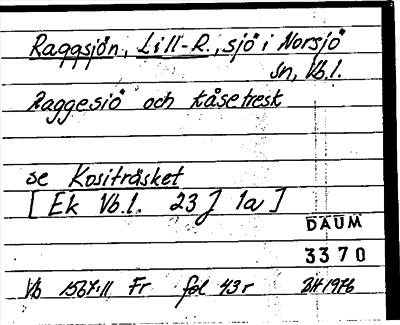 Raggsjön, Lill-R., sjö i Norsjö
sn, Vb.l.
Raggesiö och kåsetresk
se Kositräsket
[ Ek Vb.l. 23 J 1a ]
DAUM
3370
Vb 1567:11 Fr fol 43r BH 1976